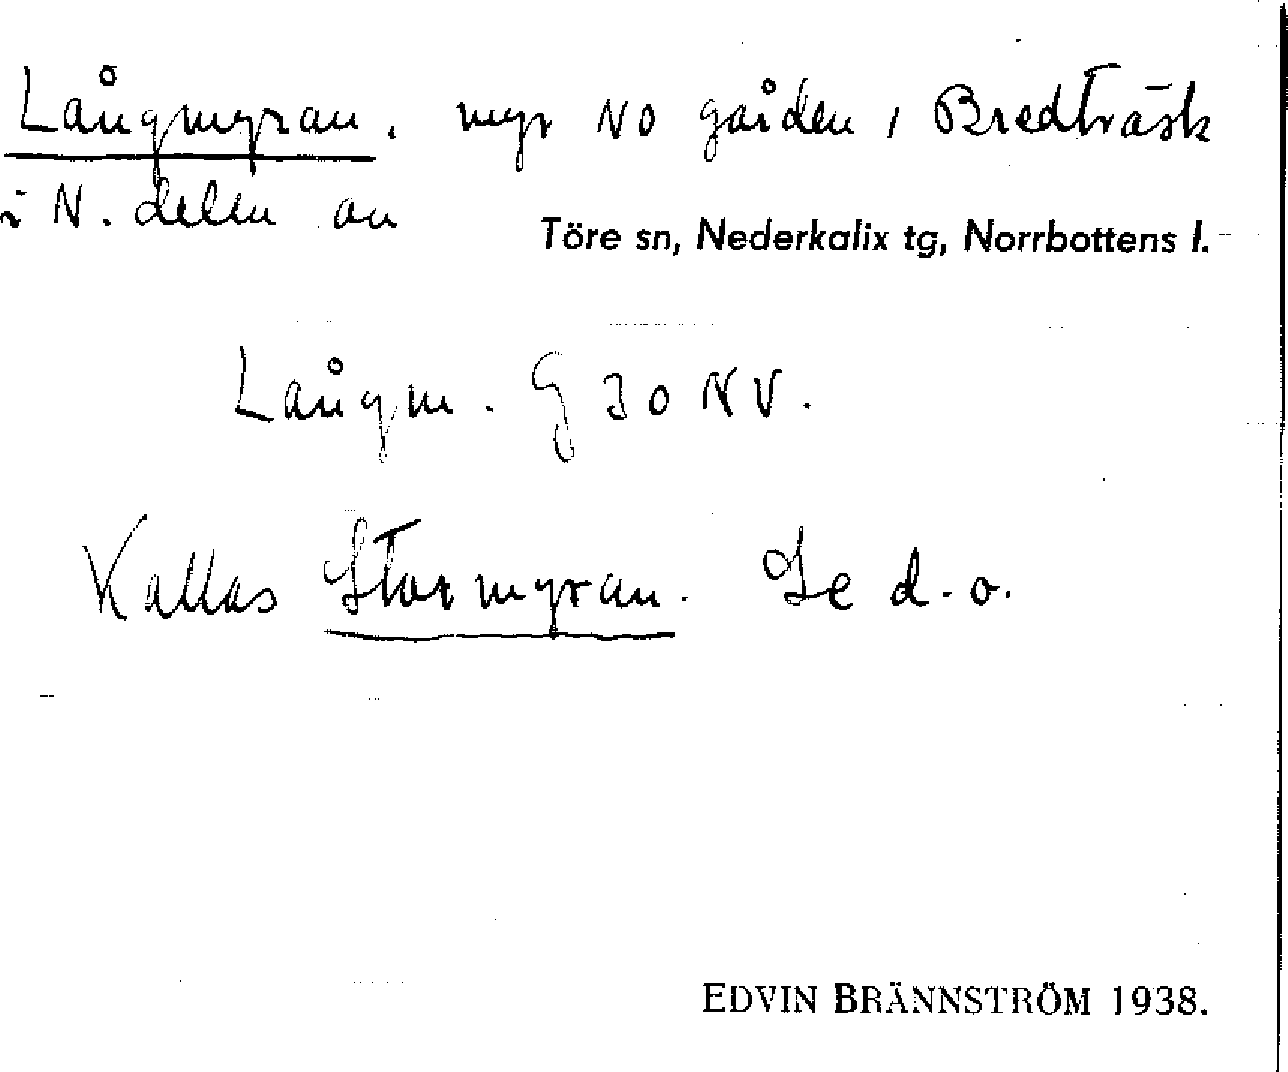 Långmyran, myr NO gården i Bredträsk
i N. delen av
Töre sn, Nederkalix tg, Norrbottens l.
Långm. G 30 NV.
Kallas Stormyran. Se d.o.
EDVIN BRÄNNSTRÖM 1938.